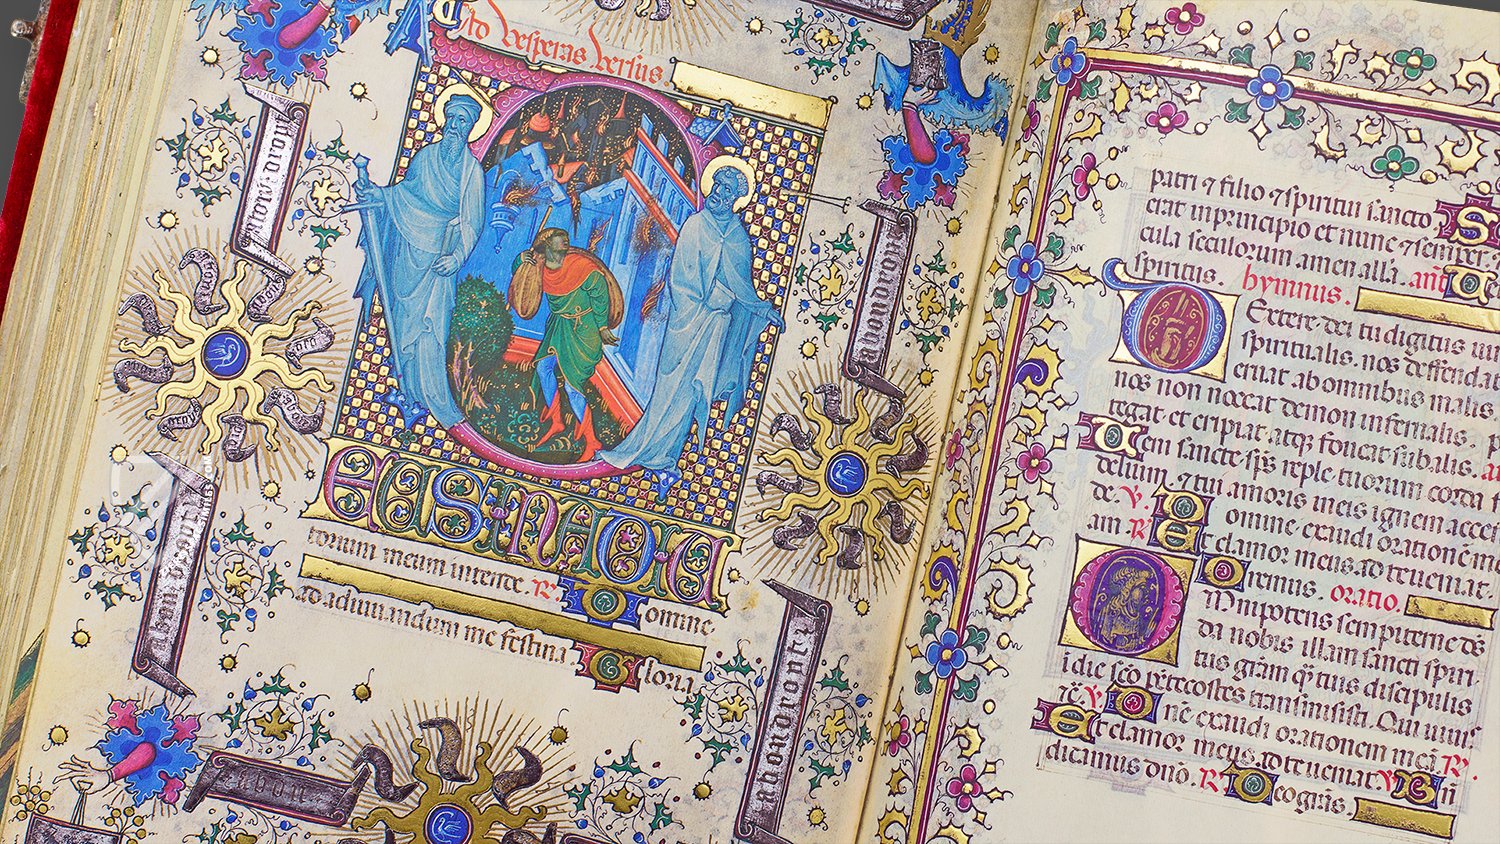 Ad vesperas versus
EUS IN ADIU
torium meum intende. R. Domine
ad adiuvandum me festina. Gloria
abon droit
abondroit
abondroit
abondroit
abon
patri ⁊ filio ⁊ spiritui sancto. S
erat in principio et nunc ⁊ semper. ⁊
cula seculorum amen alla. añ
spiritus. hymnus.
Extere dei tu digitus
spiritualis. nos deffend
eruat ab omnibus malis
nos non noceat demon infernalis. p
tegat et eripiat. atq; foncat sub alis. a
Veni sancte sp̄s reple tuorum corda f
delium. ⁊ tui amoris in eis ignem accen
de. V. Domine exaudi orationē me
am R Et clamor meus ad te veniat.
Oremus. oratio.
Omnipotens sempiterne dš
da nobis illam sancti spiri
tus grām. q̄ eius discipulis
i die sc̄o pētecostes transmisisti. Qui vivis
V. Dnē exaudi orationem meā. R.
Et clamor meus ad te veniat. V. Bn
dicamus dn̄o. R. Deo grās.